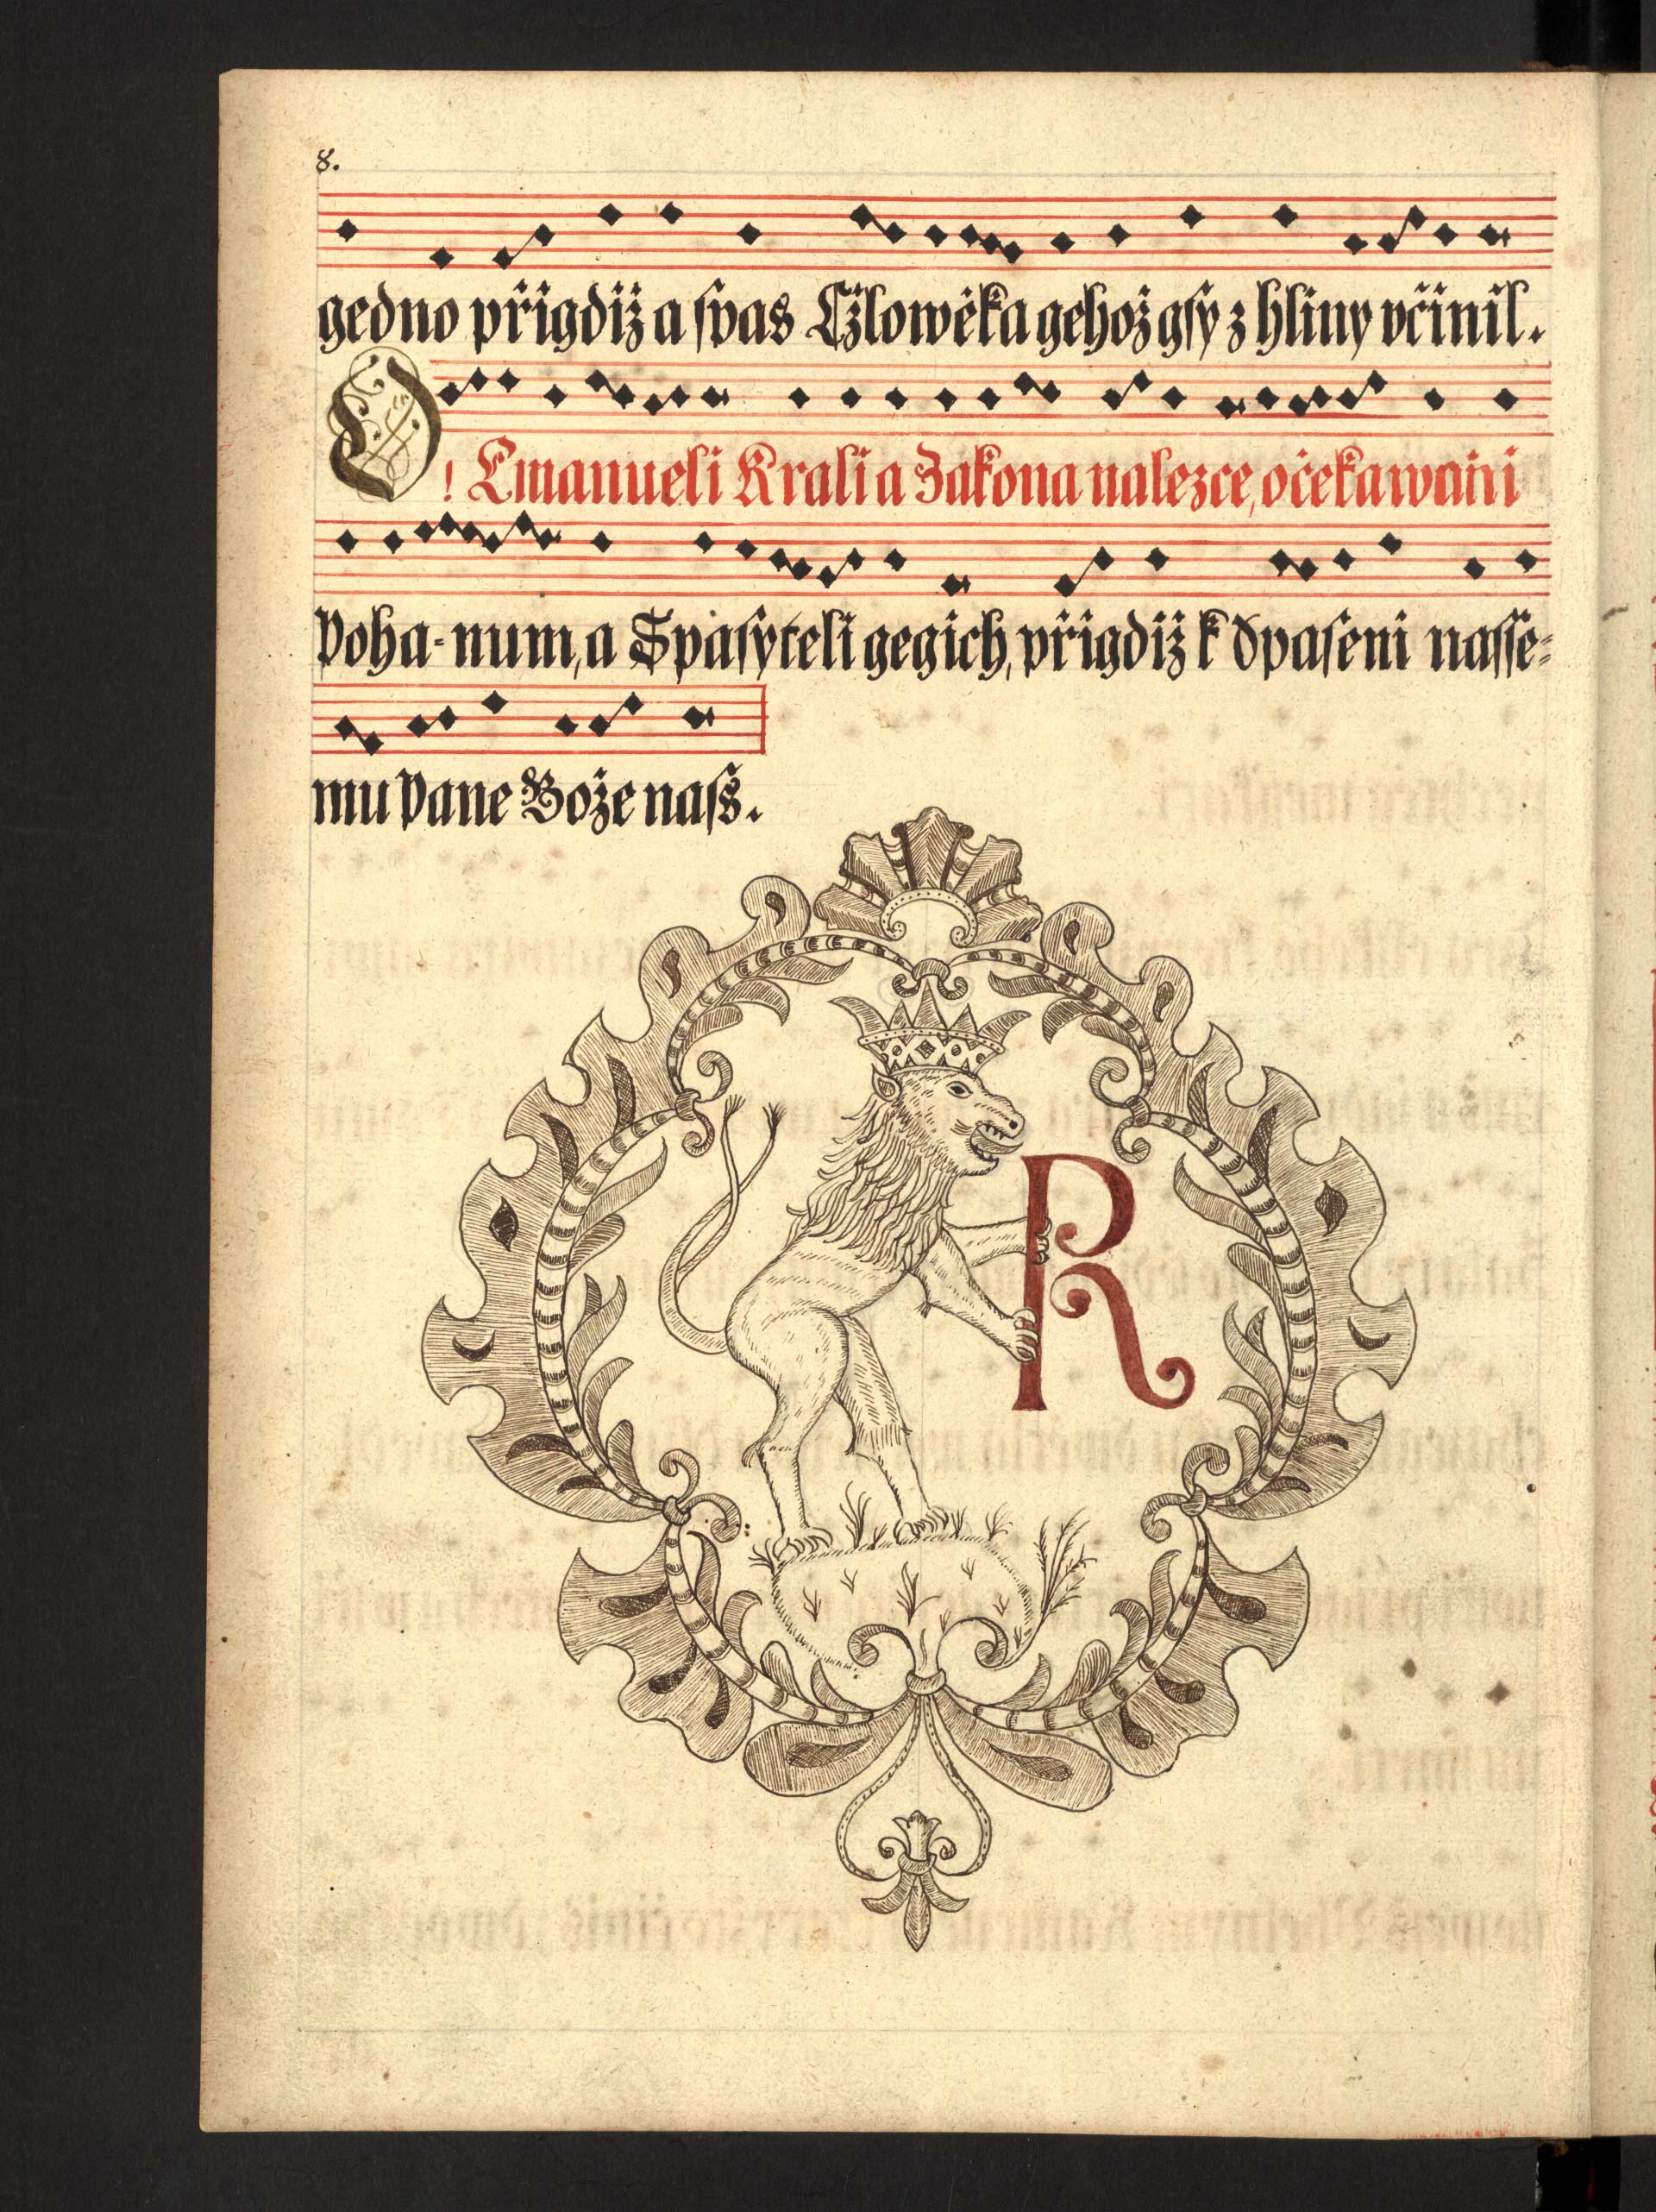 8.
gedno přigdiž a spas Cżlowěka gehož gsy z hliny včinil.
O! Emanueli Krali a Zakona nalezce, očekawani
Poha-num, a Spasyteli gegich, přigdiž k Spaseni nasse-
mu Pane Bože nass.
R